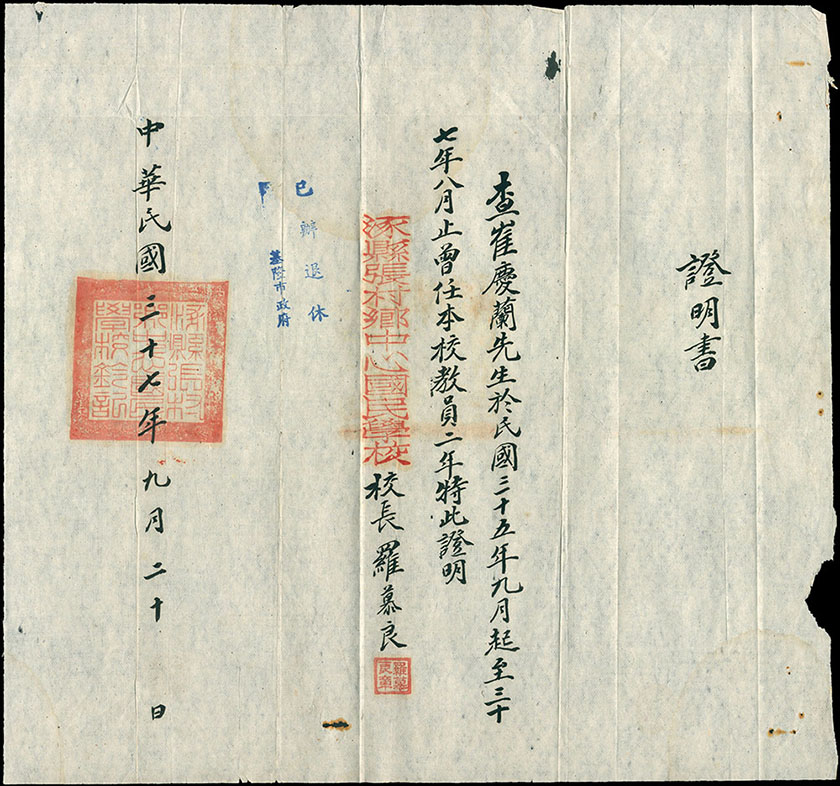 證明書
查崔慶蘭先生於民國三十五年九月起至三十
七年八月止曾任本校教員二年特此證明
涿縣張村鄉中心國民學校校長羅慕良
羅慕良章
已辦退休
基隆市政府
中華民國三十七年九月二十日